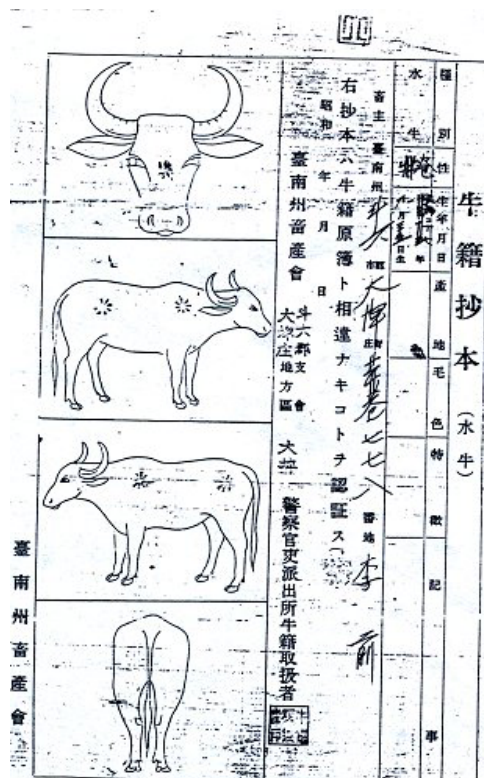 牛籍抄本（水牛）
種別 性 生年月日 產地 毛色 特徵 記事
水牛
畜主 臺南州 斗六 大埤 七七八 番地 李 前
右抄本ハ牛籍原簿ト相違ナキコトヲ認証ス
昭和 年 月 日
臺南州畜產會 斗六郡支會
大埤庄地方區 大埤 警察官吏派出所牛籍取扱者
臺南州畜產會